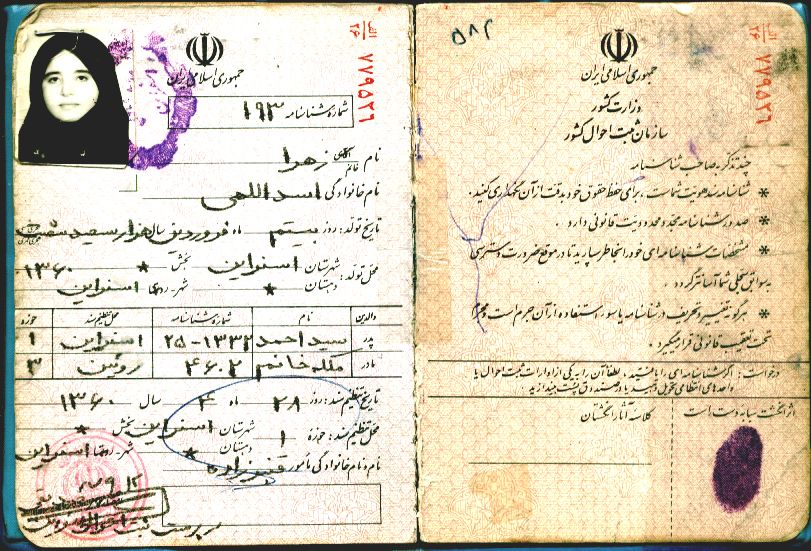 الف
۲۶
۷۷۹۵۲۶
جمهوری اسلامی ایران
شماره شناسنامه ۱۹۳
نام آقای خانم زهرا
نام خانوادگی اسداللهی
تاریخ تولد: روز بیستم ماه فروردین سال هزار سیصد شصت
محل تولد: شهرستان اسفراین بخش * ۱۳۶۰
دهستان * شهر-روستا اسفراین
والدین نام شماره شناسنامه محل تنظیم سند حوزه
پدر سید احمد ۲۵-۱۳۳۲ اسفراین ۱
مادر ملکه خانم ۴۶۰۲ روئین ۳
تاریخ تنظیم سند: روز ۲۸ ماه ۴ سال ۱۳۶۰
محل تنظیم سند: حوزه ۱ شهرستان اسفراین بخش *
دهستان * شهر-روستا اسفراین
نام و نام خانوادگی مأمور
۵۸۲
الف
۲۶
۷۷۹۵۲۶
جمهوری اسلامی ایران
وزارت کشور
سازمان ثبت احوال کشور
چند تذکر به صاحب شناسنامه
* شناسنامه سند هویت شماست، برای حفظ حقوق خود بدقت از آن نگهداری کنید.
* صدور شناسنامه مجدد محدودیت قانونی دارد.
* مشخصات شناسنامه‌ای خود را بخاطر بسپارید تا در موقع ضرورت دسترسی
به سوابق سجلی شما آسانتر گردد.
* هرگونه تغییر و تحریف در شناسنامه یا سوء استفاده از آن جرم است و مجرم
تحت تعقیب قانونی قرار میگیرد.
درخواست: اگر شناسنامه‌ای را یافتید، لطفاً آن را به یکی از ادارات ثبت احوال یا
واحدهای انتظامی تحویل دهید یا در صندوق پست بیندازید.
کلاسه آثار انگشتان
اثر انگشت سبابه دست است